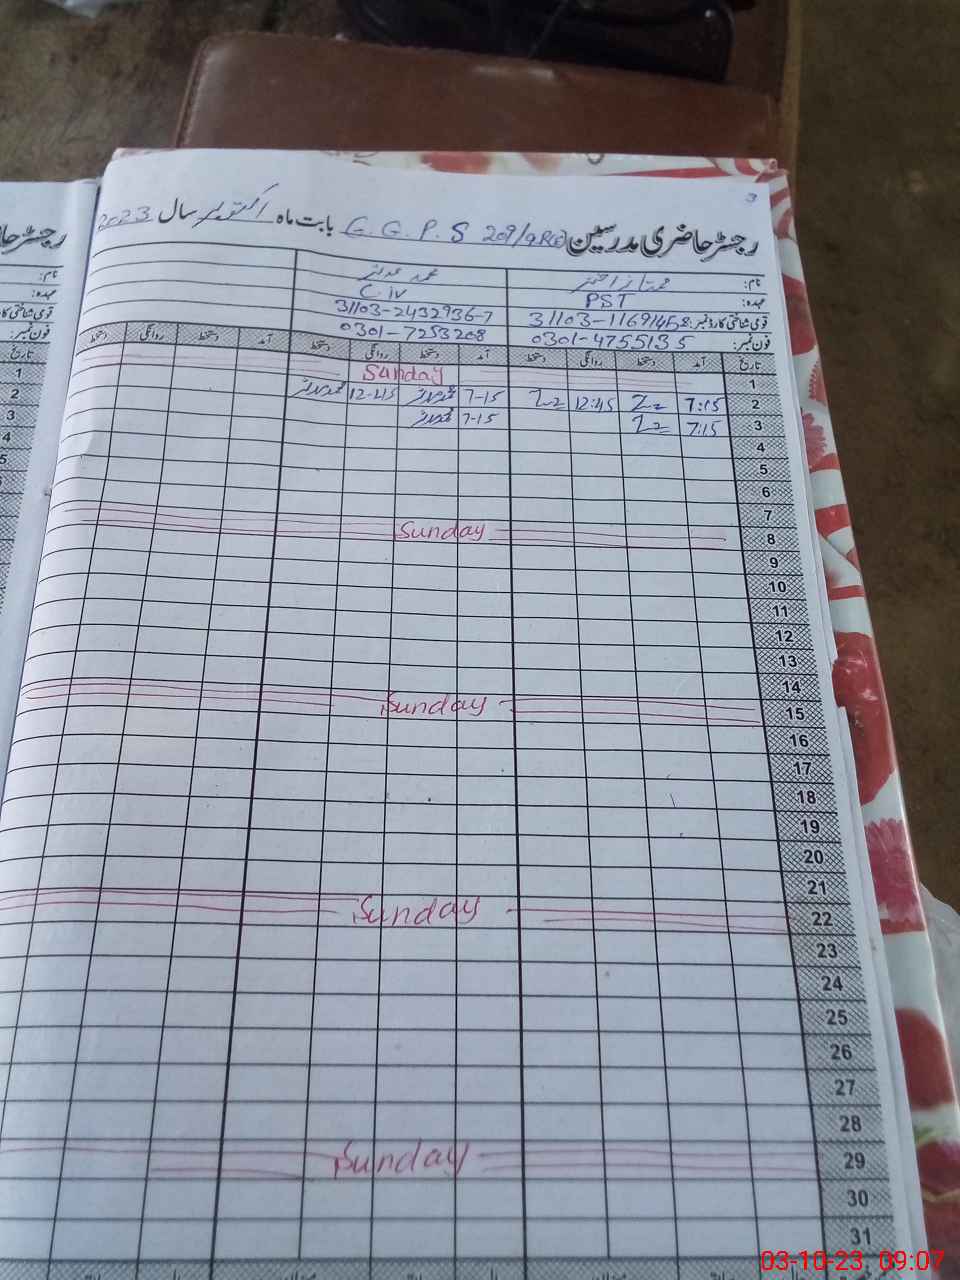 3
رجسٹر حاضری مدرسین G.G.P.S 209/9R بابت ماہ اکتوبر سال 2023
نام: ممتاز احمد محمد عدنان
عہدہ: PST C.IV
قومی شناختی کارڈ نمبر: 31103-1169145 31103-2432936-7
فون نمبر: 0301-4755135 0301-7253208
تاریخ آمد دستخط روانگی دستخط آمد دستخط روانگی دستخط آمد دستخط روانگی دستخط
1 Sunday
2 7:15 12:45 7-15 12-45
3 7:15 7-15
4
5
6
7
8 Sunday
9
10
11
12
13
14
15 Sunday
16
17
18
19
20
21
22 Sunday
23
24
25
26
27
28
29 Sunday
30
31
نام:
عہدہ:
فون نمبر:
تاریخ
1
2
3
4
5
03-10-23, 09:07